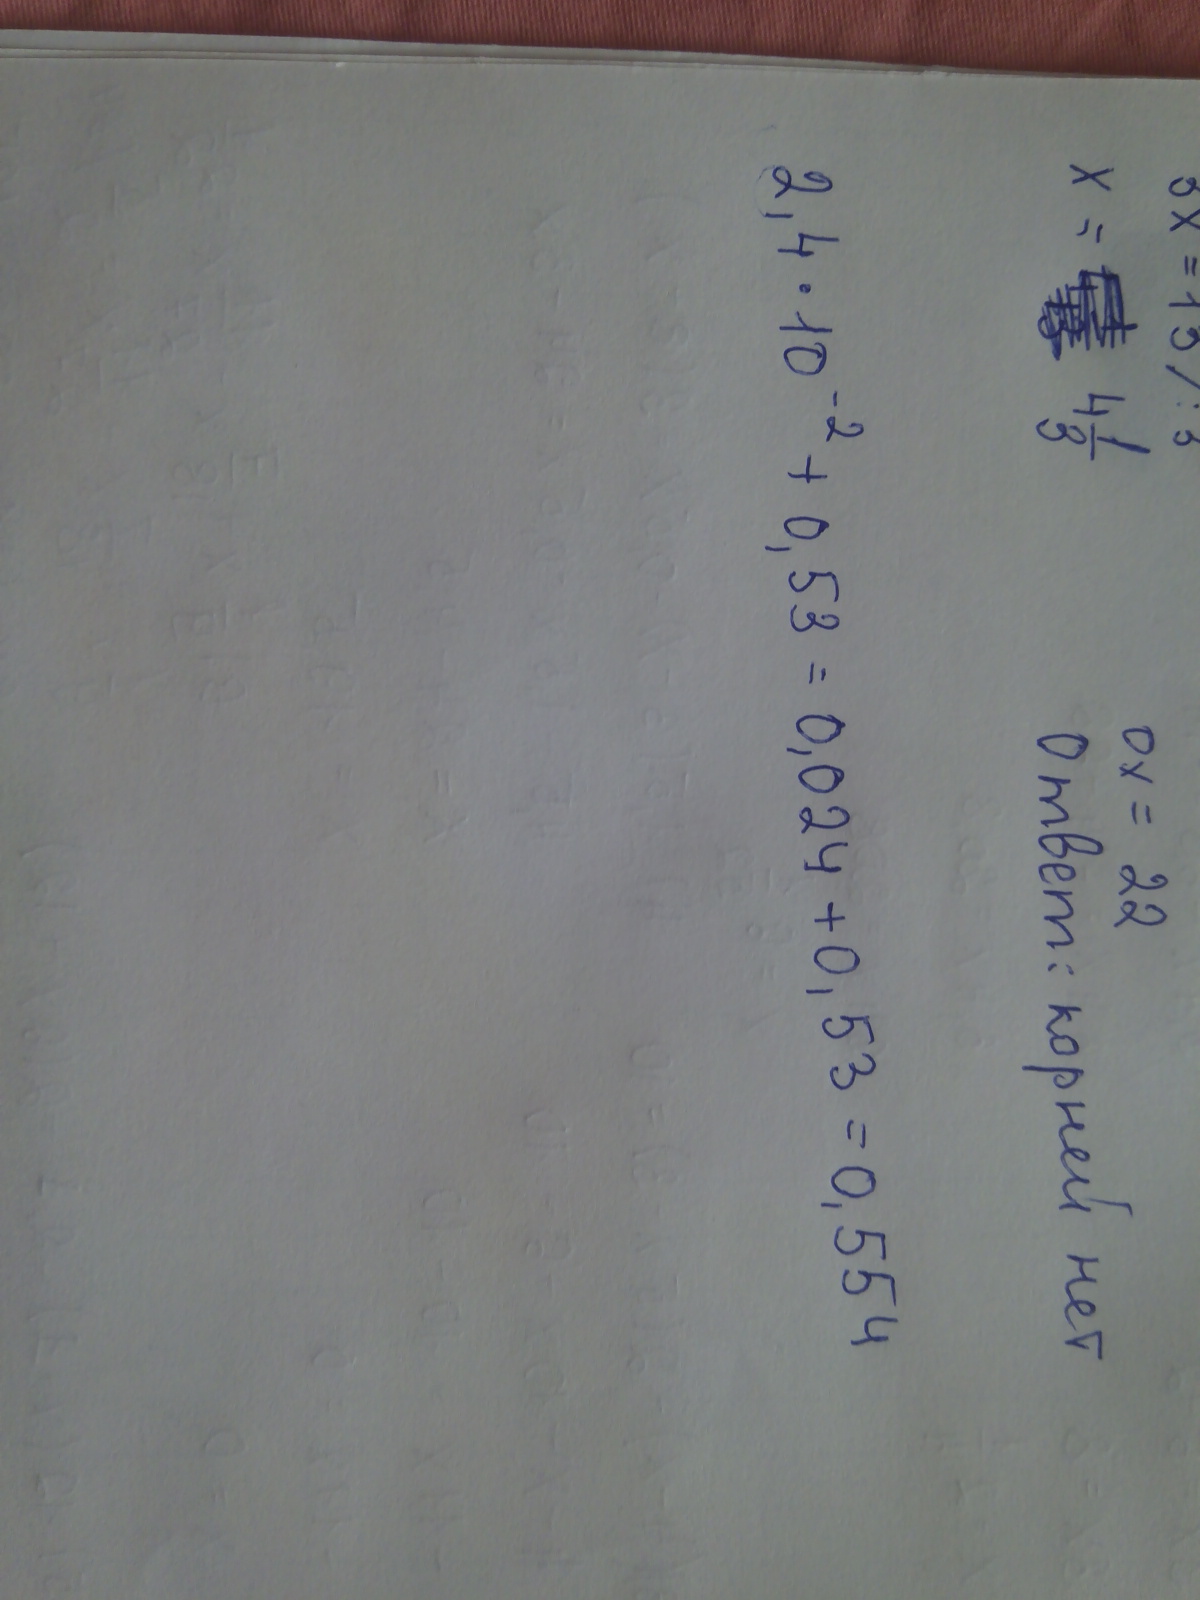 3x = 13 /:3
x = 4 1/3
0x = 22
Ответ: корней нет
2,4 · 10⁻² + 0,53 = 0,024 + 0,53 = 0,554